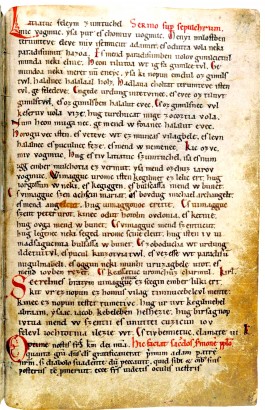 latiatuc feleym zumtuchel Sermo sup sepulchrum.
mic vogmuc. yſa pur eſ chomuv uogmuc. Menyi miloſtben
terumteve eleve miv iſemucut adamut. eſ odutta vola neki
paradiſumut hazoa. Eſ mend paradiſumben uolov gimilcictul
munda neki elnie. Heon tilutoa wt ig fa gimilcetvl. Ge
mundoa neki meret nũ eneyc. yſa ki nopun emdul oz gimilſ
twl. halalnec halalaal holz. Hadlaua choltat terumteve iſten
tvl. ge feledeve. Engede urdung intetvinec. eſ evec oz tiluvt
gimilſtwl. eſ oz gimilſben halalut evec. Eſ oz gimilſnec vvl
keſeruv uola vize. hug turchucat mige zocoztia vola.
Num heon muga nec. ge mend w foianec halalut evec.
Horoguvec iſten. eſ veteve wt ez muncaſ vilagbele. eſ levn
halalnec eſ puculnec feze. eſ mend w nemenec. Kic ozvc.
miv vogmuc. Hog eſ tiv latiatuv ſzumtuchel. iſa eſ num
igg ember mulchotia ez vermut. yſa mend ozchuz iarov
vogmuc. Wimagguc uromv iſten kegilmet ez lelic ert. hug
iorgoſſun w neki. eſ kegiggen. eſ bulſassa mend w bunet.
Eſ vimagguc ſzen achſcin mariat. eſ bovdug michael archangelt.
eſ mend angelcut. hug uimaggonoc erette. Eſ uimagguc
ſzent peter urot. kinec odut hotolm ovdonia. eſ ketnie.
hug ovga mend w bunet. Eſ vimagguc mend ſzentucut.
hug legenec neki ſeged uromc ſcine eleut. hug iſten iv ui
madſaguc mia bulſassa w bunet. Eſ zobodoha wt urdung
ildetuitvl. eſ pucul kinzotviatwl. eſ vezeſſe wt paradiſu
nugulmabeli. eſ oggun neki munhi uruzagbele utot. eſ
mend iovben rezet. Eſ keaſſatuc uromchuz charmul. Kirl.
Scerelmes bratym uimagguc ez scegin ember lilki ert.
kit vr ez nopun ez homus vilag timnucebelevl mente.
kinec ez nopun testet tumetivc. hug ur uvt kegilmehel
abraam. ysaac. iacob. kebeleben helhezie. hug birsagnop
ivtva mend w szentii es unuttei cuzicun iov
felevl iochtotnia ilezie vvt. Es tivbennetuc. clamate III K.